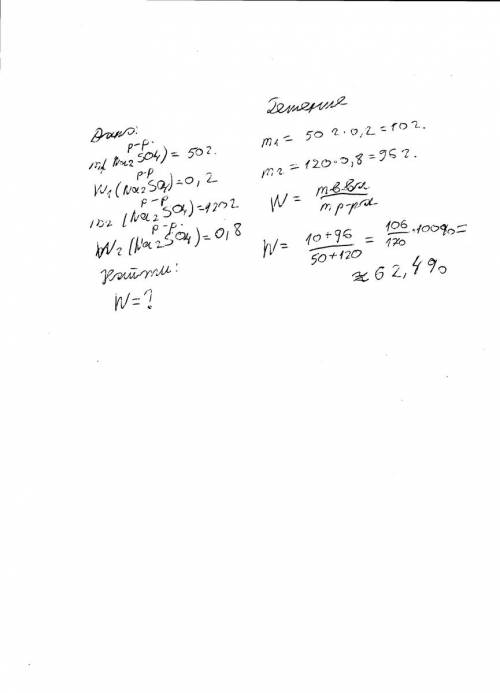 Дано:
р-р.
m1 (Na2SO4) = 50г.
р-р
W1 (Na2SO4) = 0,2
р-р
m2 (Na2SO4) = 120г
р-р.
W2 (Na2SO4) = 0,8
Найти:
W = ?
Решение
m1 = 50г·0,2 = 10г.
m2 = 120·0,8 = 96г.
W = mв.ва / m.р-ра
W = 10+96 / 50+120 = 106 / 170 ·100% =
≈ 62,4%